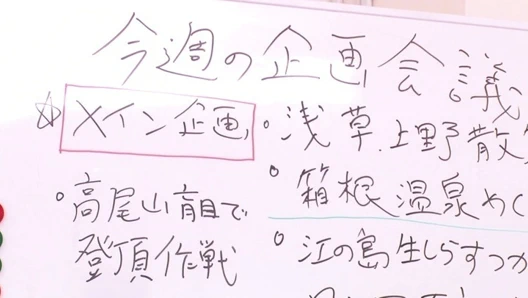 今週の企画会議
☆メイン企画
。高尾山盲目で
登頂作戦
。浅草.上野散
。箱根温泉めぐ
。江の島生しらすつか